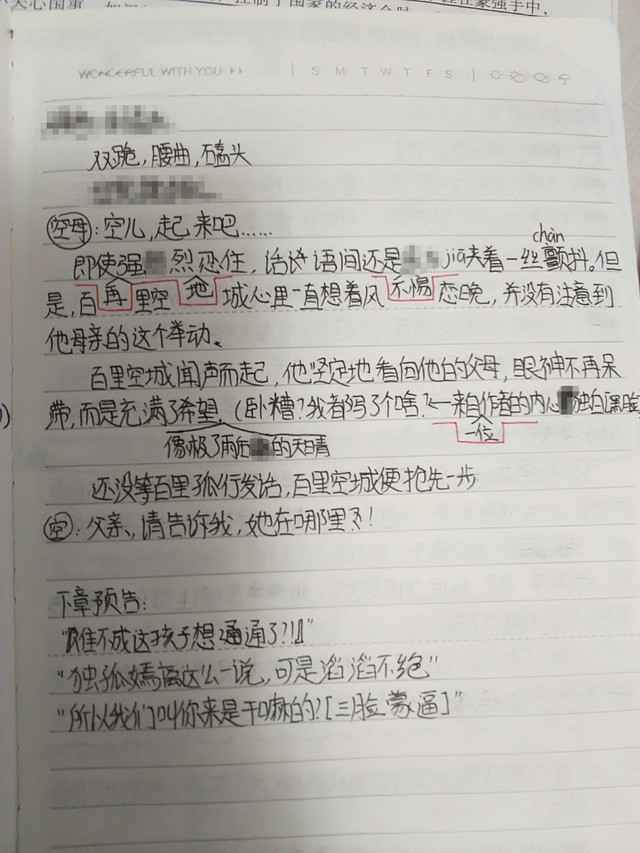 天心国重
注制了国家的经济命脉
在家强手中,
WONDERFUL WITH YOU ▸▸ | S M T W T F S |
双跪,腰曲,磕头
空母:空儿,起来吧……
即使强烈忍住,话语间还是jiā夹着一丝颤chàn抖。但
是,百里空城心里一直想着风不惕恋晚,并没有注意到
再 地
他母亲的这个举动。
百里空城闻声而起,他坚定地看向他的父母,眼神不再呆
滞,而是充满了希望。(卧糟?我都写了个啥?←来自作者的内心独白(黑脸
像极了雨后的天晴
一位
还没等百里孤行发话,百里空城便抢先一步
空:父亲,请告诉我,她在哪里?!
下章预告:
“难不成这孩子想通通了?!”
“独孤嫣离这么一说,可是滔滔不绝”
“所以我们叫你来是干嘛的?[三脸蒙逼]”